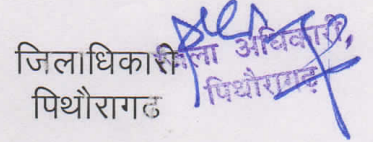 जिलाधिकारी
पिथौरागढ
जिला अधिकारी,
पिथौरागढ़